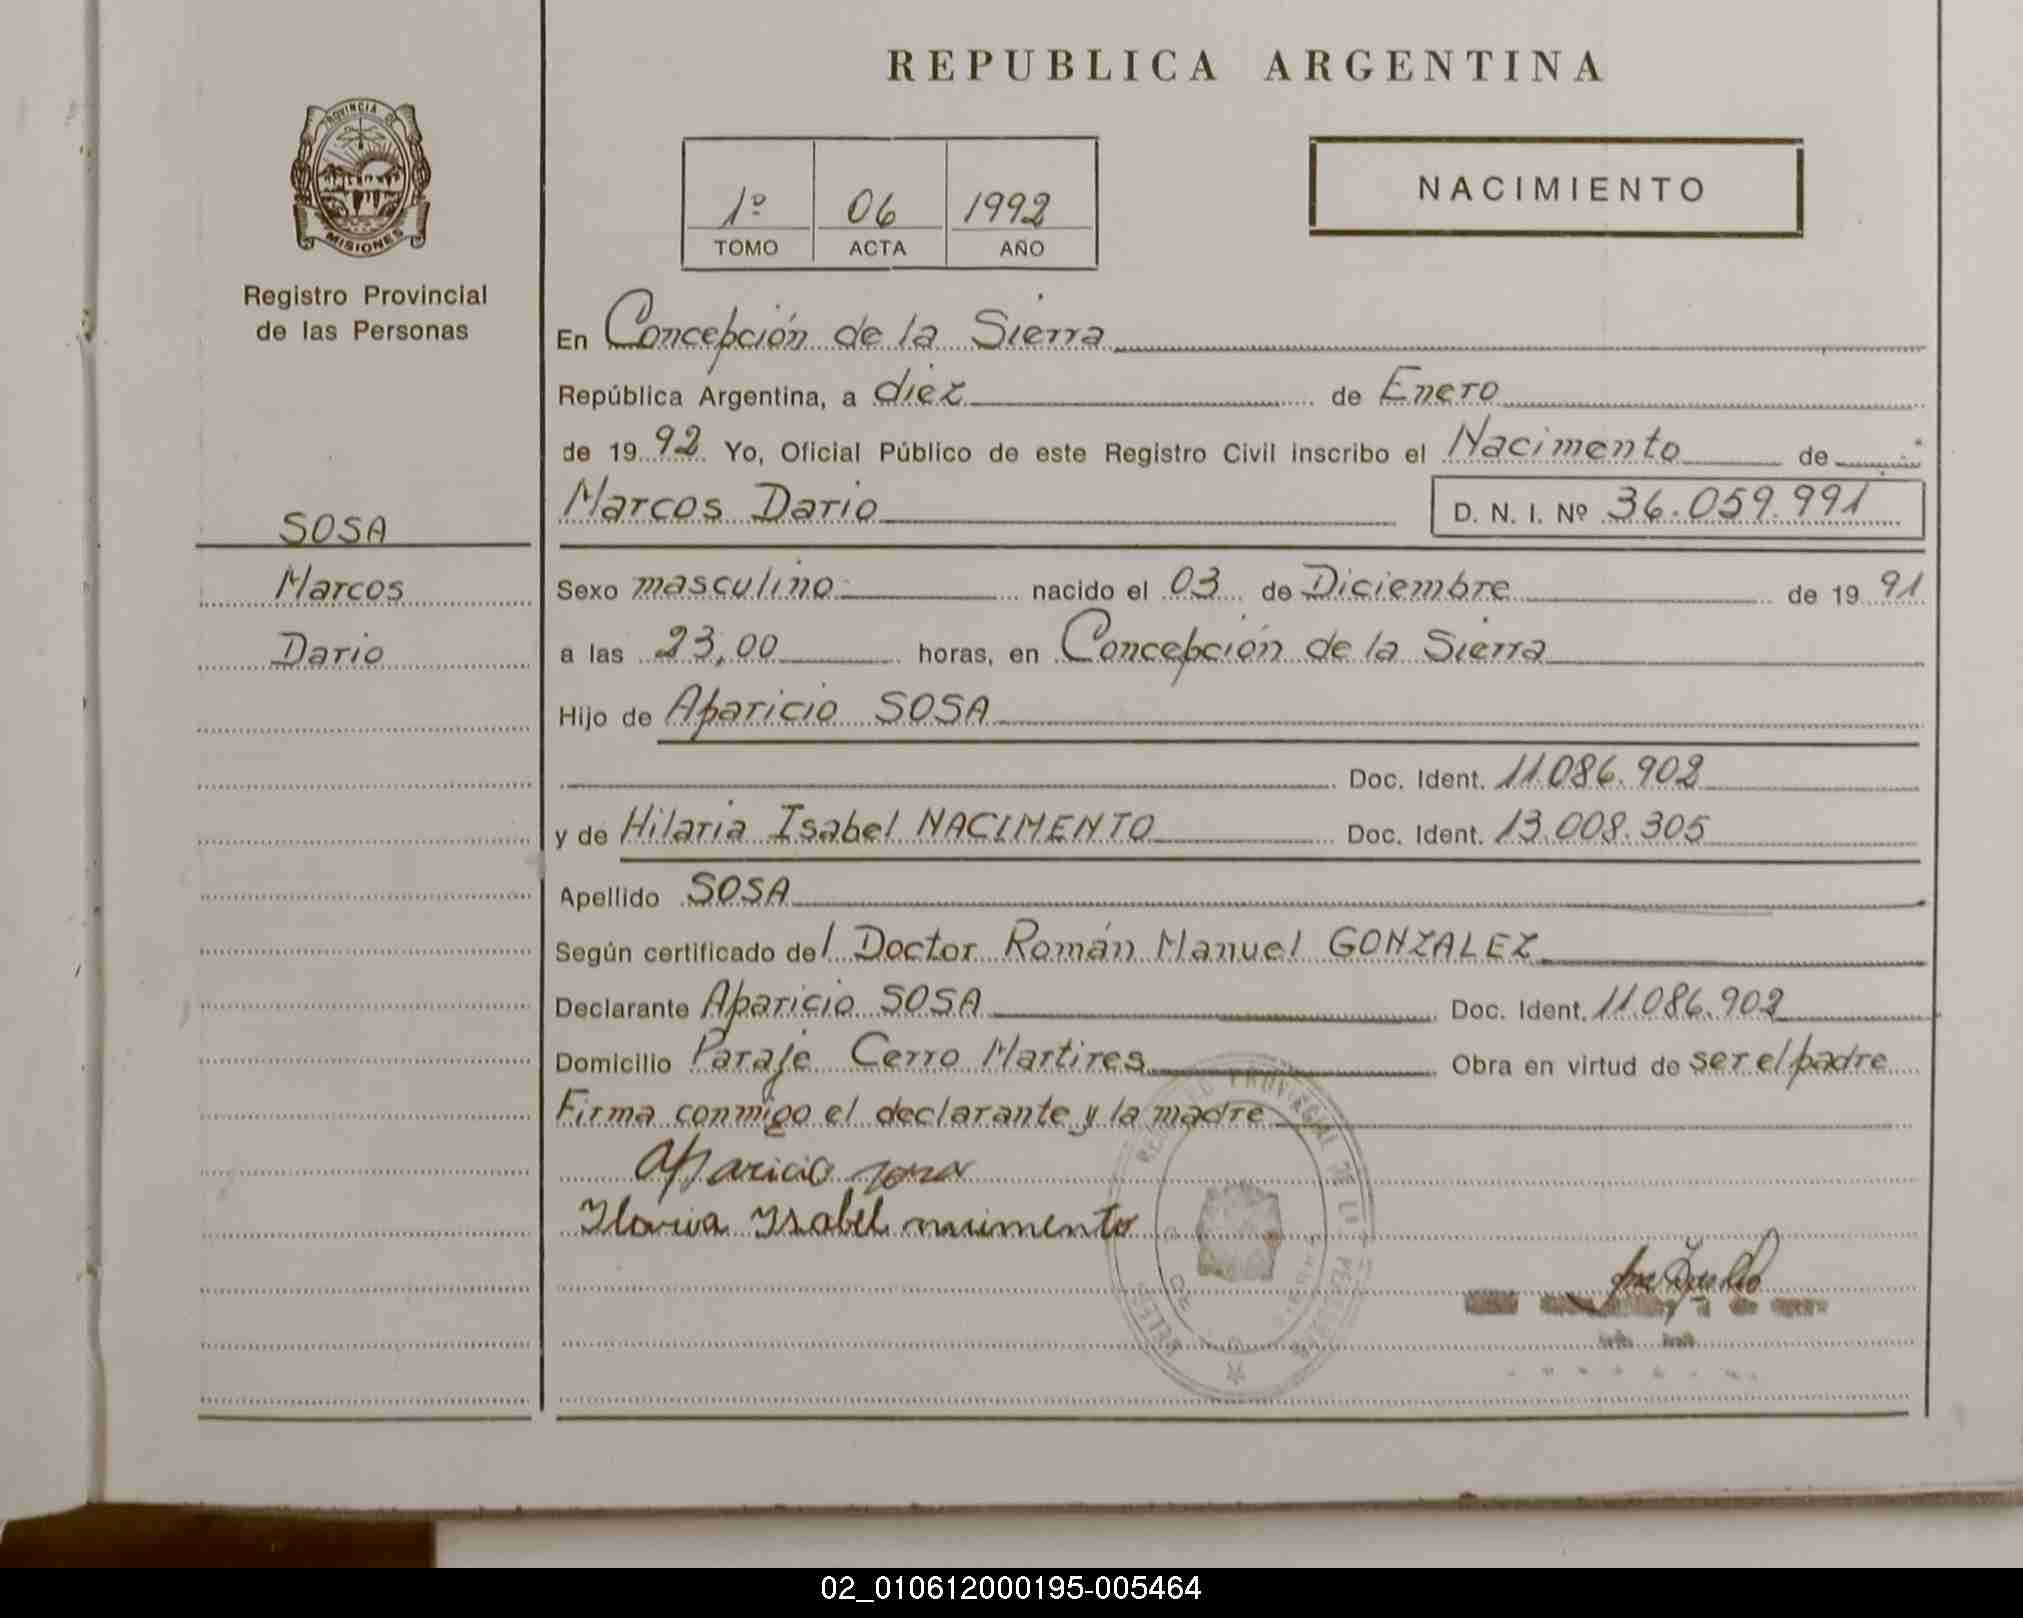 REPUBLICA ARGENTINA
PROVINCIA DE
MISIONES
Registro Provincial
de las Personas
1º 06 1992
TOMO ACTA AÑO
NACIMIENTO
En Concepción de la Sierra
República Argentina, a diez de Enero
de 19 92 Yo, Oficial Público de este Registro Civil inscribo el Nacimento de
Marcos Dario D. N. I. Nº 36.059.991
SOSA
Marcos
Dario
Sexo masculino nacido el 03 de Diciembre de 19 91
a las 23,00 horas, en Concepción de la Sierra
Hijo de Aparicio SOSA
Doc. Ident. 11.086.902
y de Hilaria Isabel NACIMENTO Doc. Ident. 13.008.305
Apellido SOSA
Según certificado del Doctor Román Manuel GONZALEZ
Declarante Aparicio SOSA Doc. Ident. 11.086.902
Domicilio Paraje Cerro Martires Obra en virtud de ser el padre
Firma conmigo el declarante y la madre
Aparicio sosa
Ilaria Isabel nacimento
PROVINCIAL DE
02_010612000195-005464